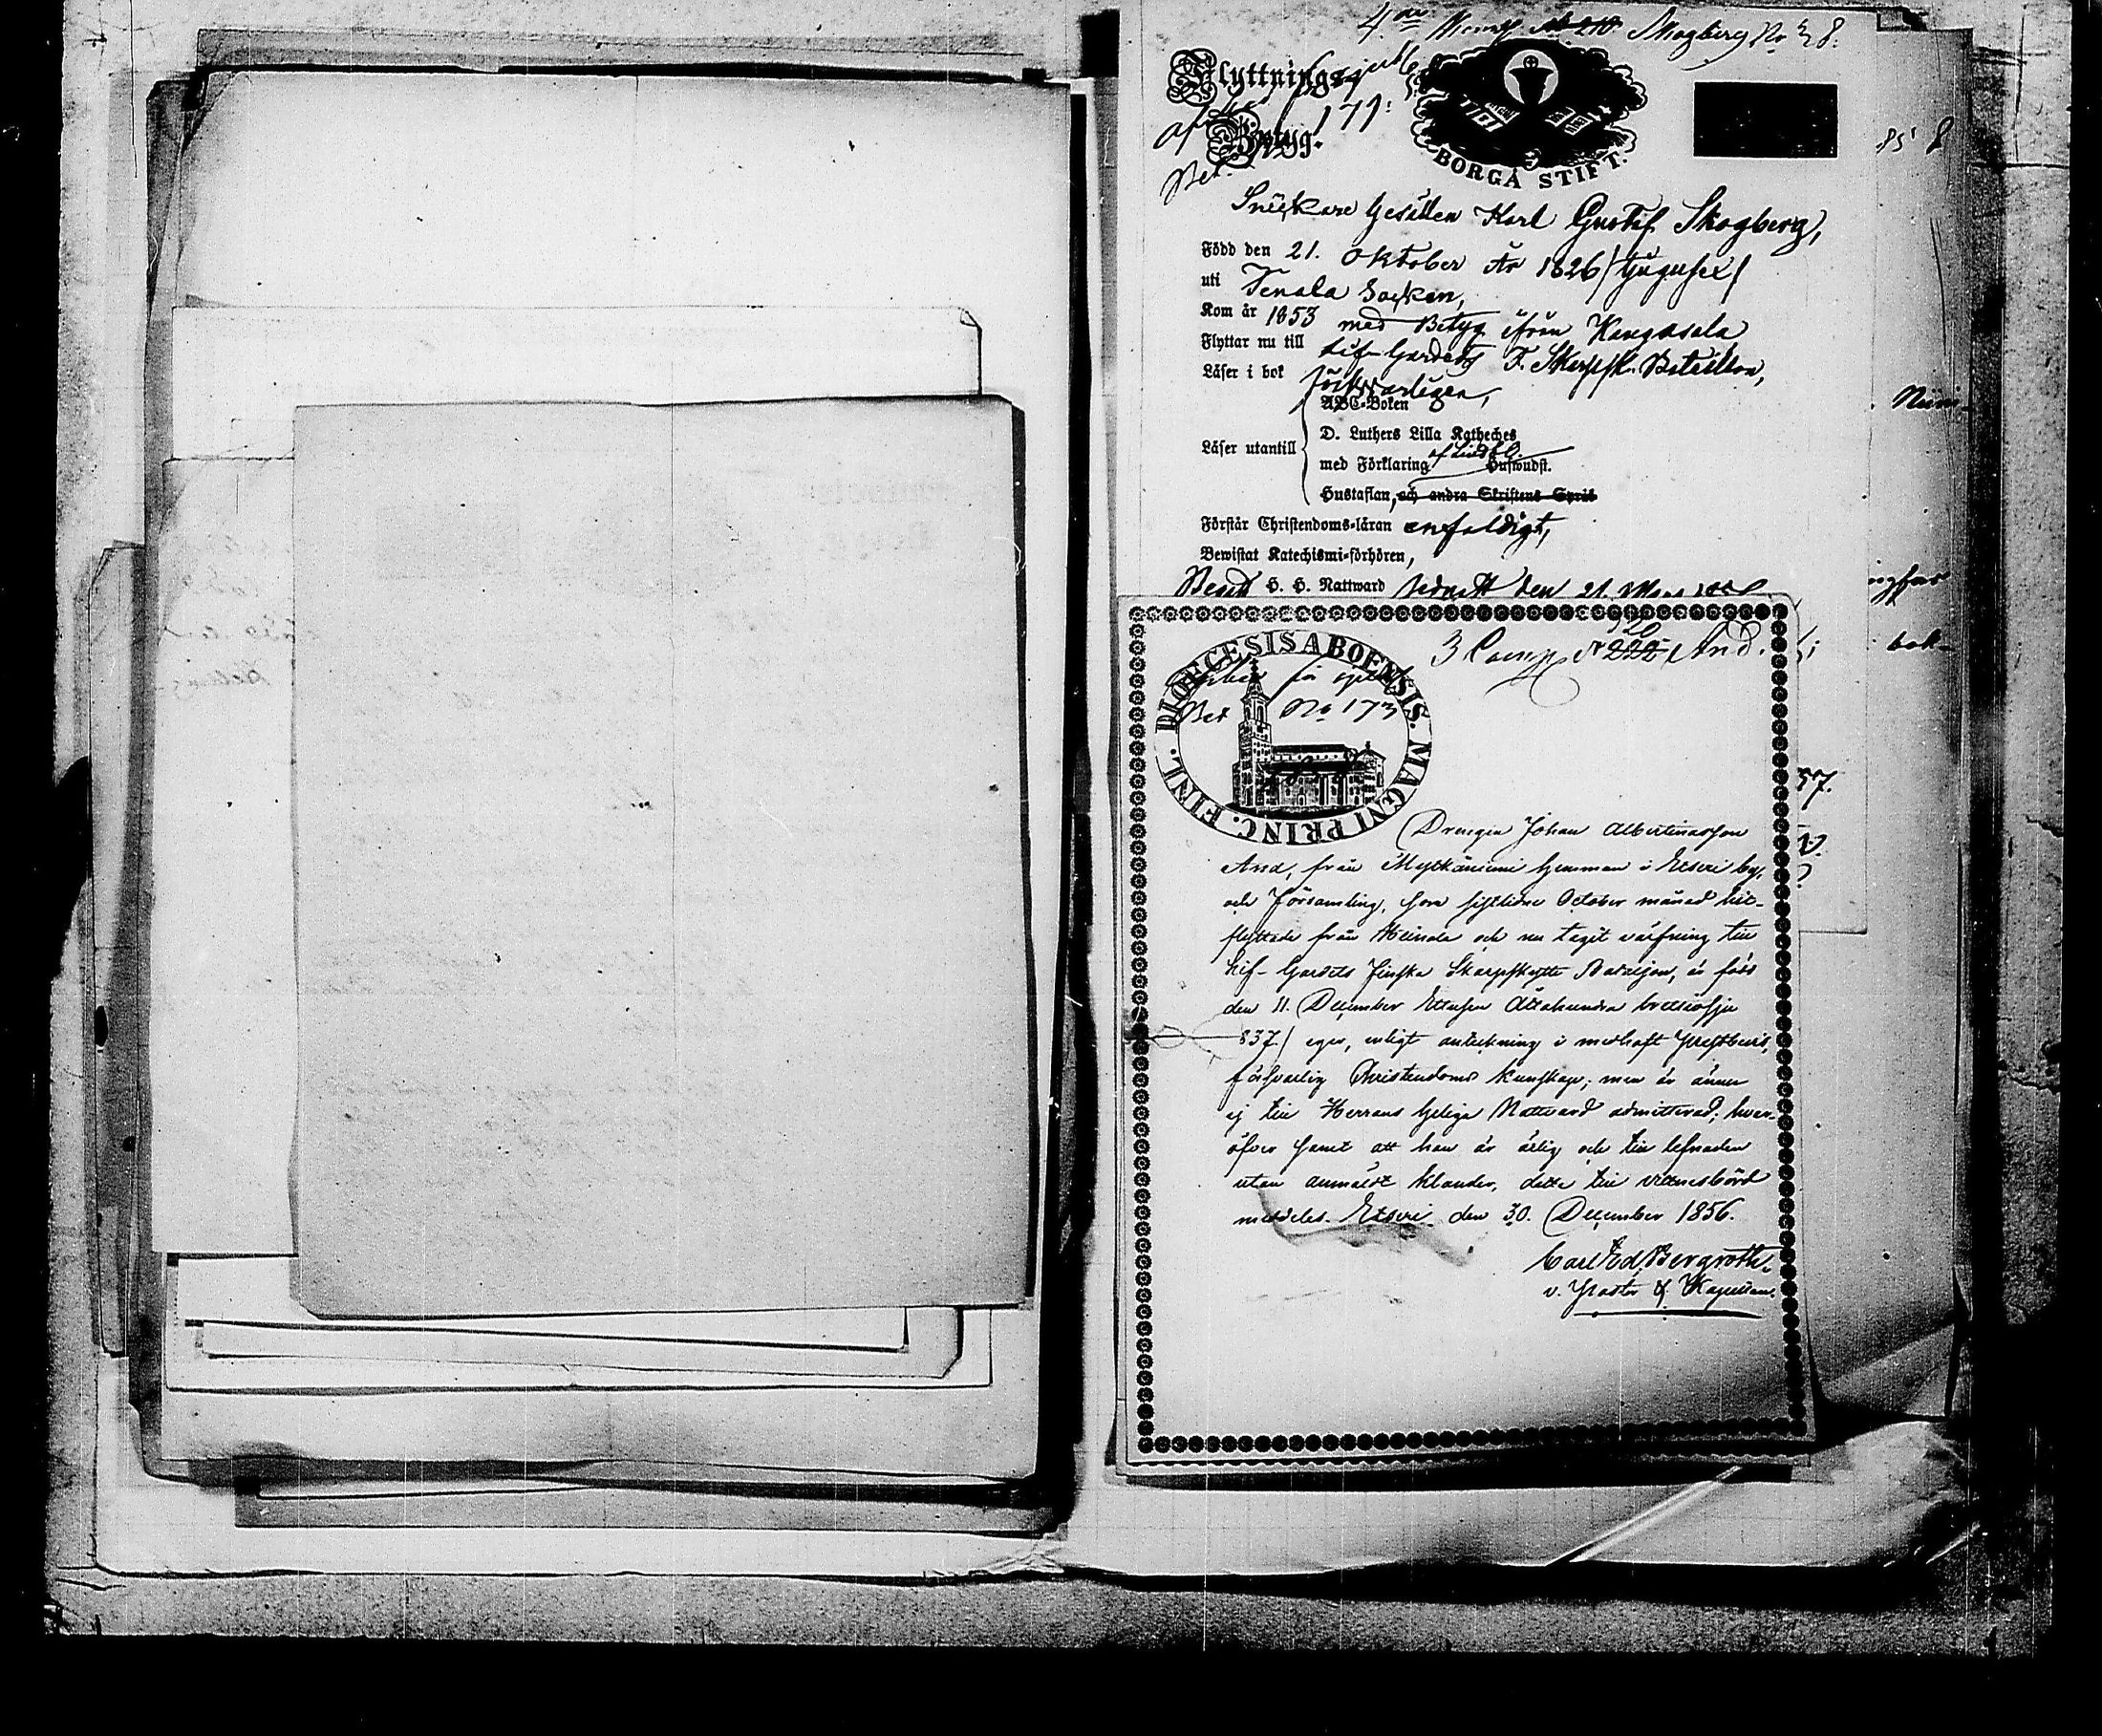 4. de Komp. No 210. Skogberg No 28.
Flyttnings-
Betyg.
171.
BORGÅ STIFT.
85 8
Snickare Gesällen Karl Gustaf Skogberg,
Född den 21. Oktober År 1826 /tjugusex/
uti Tenala Socken,
Kom år 1853 med Betyg ifrån Kangasala
Flyttar nu till Lif-Gardets F. Skarpsk. Bataillon,
Läser i bok försvarligen,
ABC-Boken
Läser utantill D. Luthers Lilla Katheches
med Förklaring af Lindbl. Huswudst.
Hustaflan, och andra Skriftens Språk
Förstår Christendoms-läran enfaldigt,
Bewistat Katechismi-förhören,
Begått H. H. Nattward den 21. Mars
bok-
57.
DIOECESIS ABOENSIS. MAGNI PRINC. FINL.
3 Comp. N 222 20 And.
Bet No 173
Drengen Johan Albertinasson
And, från Mytkäniemi hemman i Etseri by,
och Församling, som sistlidne October månad hit-
flyttade från Keinola och nu tagit värfning till
Lif-Gardets Finska Skarpskytte Bataljon, är född
den 11. December Ettusen Åttahundra trettiosju
837/ eger, enligt anteckning i medhaft Prestbevis,
försvarlig Christendoms kunskap; men är ännu
ej till Herrans Heliga Nattvard admitterad; hvar-
öfver samt att han är ärlig och till lefnaden
utan anmäldt klander, detta till vittnesbörd
meddeles. Etseri den 30. December 1856.
Carl Ed. Bergroth.
v. Pastor & Kapellan.